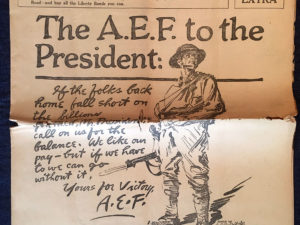 Road—and buy all the Liberty Bonds you can.
EXTRA
The A.E.F. to the
President:
If the folks back
home fall short on
the billions
call on us for the
balance. We like our
pay - but if we have
to we can go
without it.
Yours for Victory,
A.E.F.